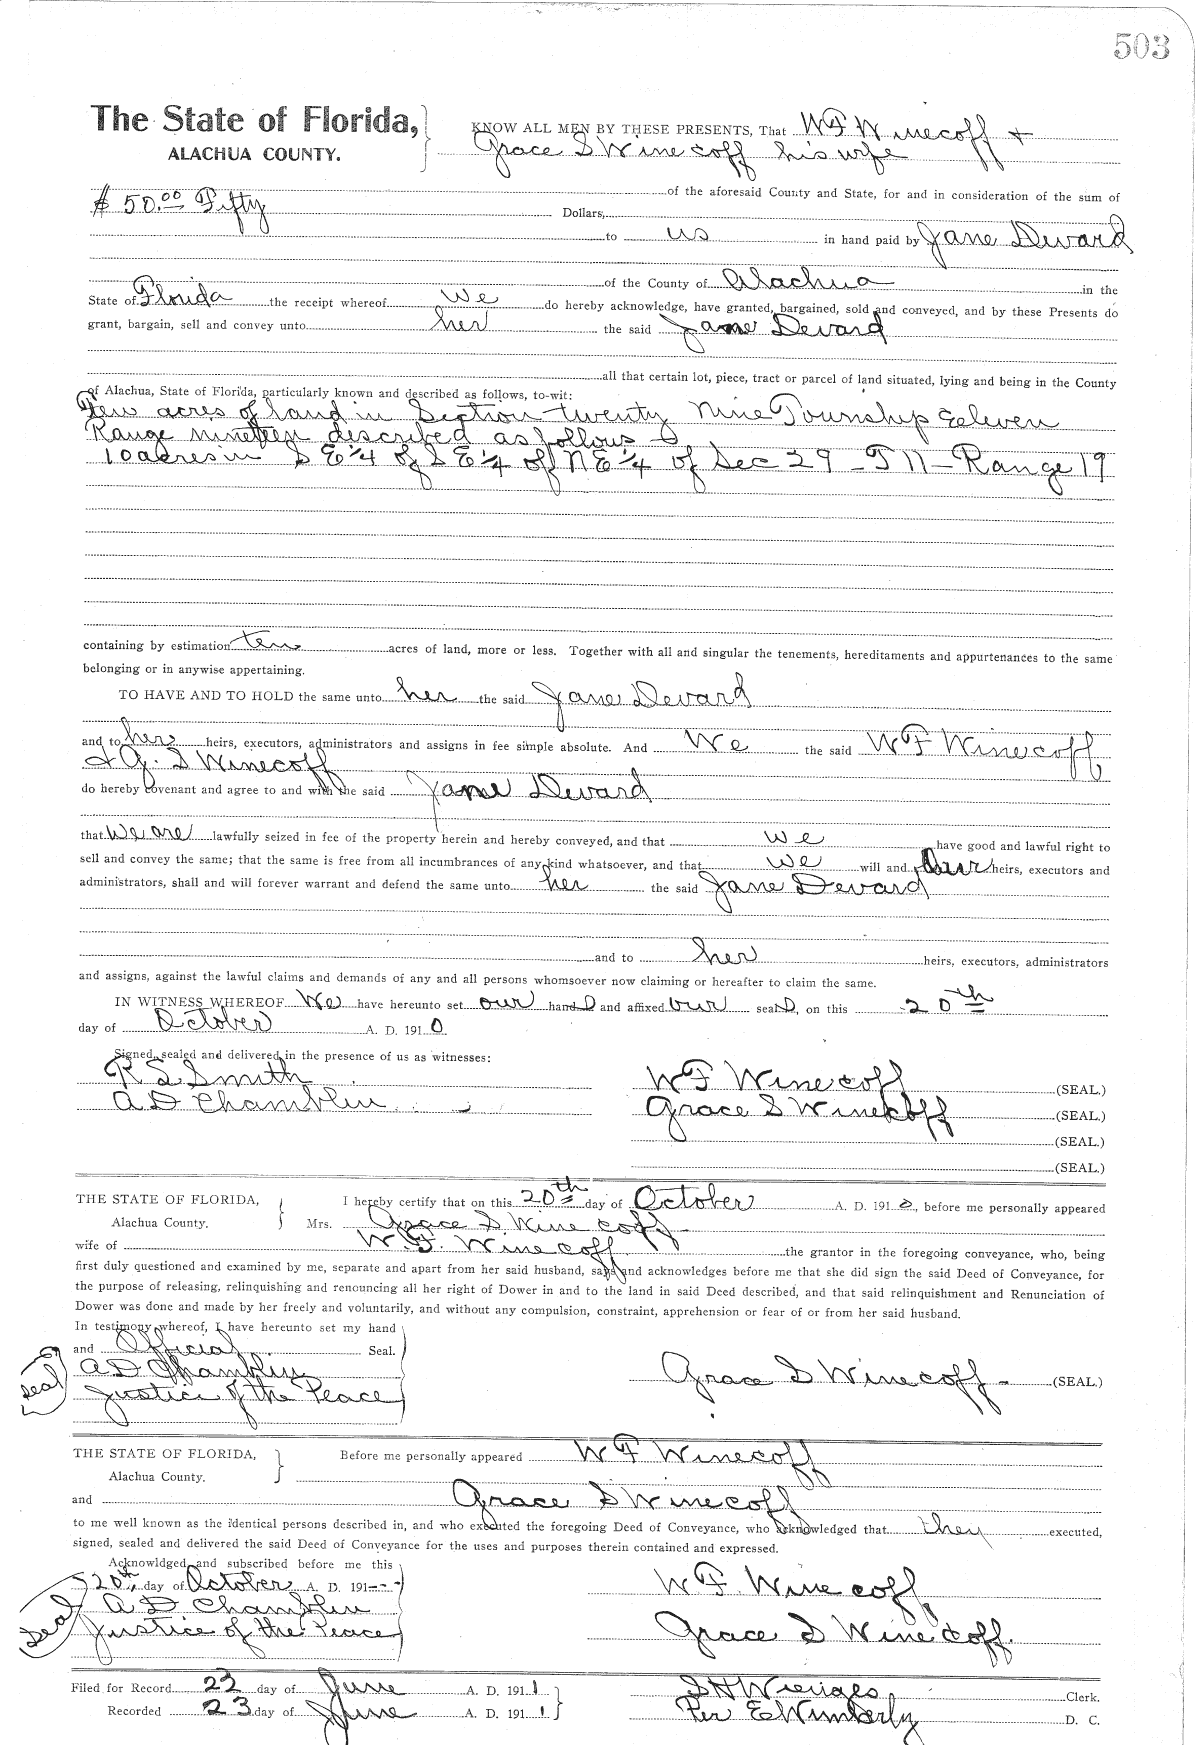 503
The State of Florida,
ALACHUA COUNTY.
KNOW ALL MEN BY THESE PRESENTS, That W F Winecoff +
Grace S Winecoff his wife
of the aforesaid County and State, for and in consideration of the sum of
$ 50.00 Fifty Dollars,
to us in hand paid by Jane Devard
of the County of Alachua in the
State of Florida the receipt whereof we do hereby acknowledge, have granted, bargained, sold and conveyed, and by these Presents do
grant, bargain, sell and convey unto her the said Jane Devard
all that certain lot, piece, tract or parcel of land situated, lying and being in the County
of Alachua, State of Florida, particularly known and described as follows, to-wit:
acres of land in Section twenty Nine Township Eeleven
Range nineteen described as follows
10 acres in S E 1/4 of S E 1/4 of N E 1/4 of Sec 29 - T 11 - Range 19
containing by estimation ten acres of land, more or less. Together with all and singular the tenements, hereditaments and appurtenances to the same
belonging or in anywise appertaining.
TO HAVE AND TO HOLD the same unto her the said Jane Devard
and to her heirs, executors, administrators and assigns in fee simple absolute. And We the said W F Winecoff
& G. S Winecoff
do hereby covenant and agree to and with the said Jane Devard
that we are lawfully seized in fee of the property herein and hereby conveyed, and that we have good and lawful right to
sell and convey the same; that the same is free from all incumbrances of any kind whatsoever, and that we will and our heirs, executors and
administrators, shall and will forever warrant and defend the same unto her the said Jane Devard
and to her heirs, executors, administrators
and assigns, against the lawful claims and demands of any and all persons whomsoever now claiming or hereafter to claim the same.
IN WITNESS WHEREOF We have hereunto set our hands and affixed our seals, on this 20th
day of October A. D. 1910
Signed, sealed and delivered in the presence of us as witnesses:
R S Smith
A D Chamblin
W F Winecoff (SEAL.)
Grace S Winecoff (SEAL.)
(SEAL.)
(SEAL.)
THE STATE OF FLORIDA,
Alachua County.
I hereby certify that on this 20th day of October A. D. 1910, before me personally appeared
Mrs. Grace S Winecoff
wife of W. F. Winecoff the grantor in the foregoing conveyance, who, being
first duly questioned and examined by me, separate and apart from her said husband, says and acknowledges before me that she did sign the said Deed of Conveyance, for
the purpose of releasing, relinquishing and renouncing all her right of Dower in and to the land in said Deed described, and that said relinquishment and Renunciation of
Dower was done and made by her freely and voluntarily, and without any compulsion, constraint, apprehension or fear of or from her said husband.
In testimony whereof, I have hereunto set my hand
and Official Seal.
Seal
A D Chamblin
Justice of the Peace
Grace S Winecoff (SEAL.)
THE STATE OF FLORIDA,
Alachua County.
Before me personally appeared W F Winecoff
and Grace S Winecoff
to me well known as the identical persons described in, and who executed the foregoing Deed of Conveyance, who acknowledged that they executed,
signed, sealed and delivered the said Deed of Conveyance for the uses and purposes therein contained and expressed.
Acknowldged and subscribed before me this
20th day of October A. D. 191---
Seal
A D Chamblin
Justice of the Peace
W F Winecoff
Grace S Winecoff.
Filed for Record 23 day of June A. D. 1911
Recorded 23 day of June A. D. 1911
S H Wienges Clerk.
Per E Wimberly D. C.